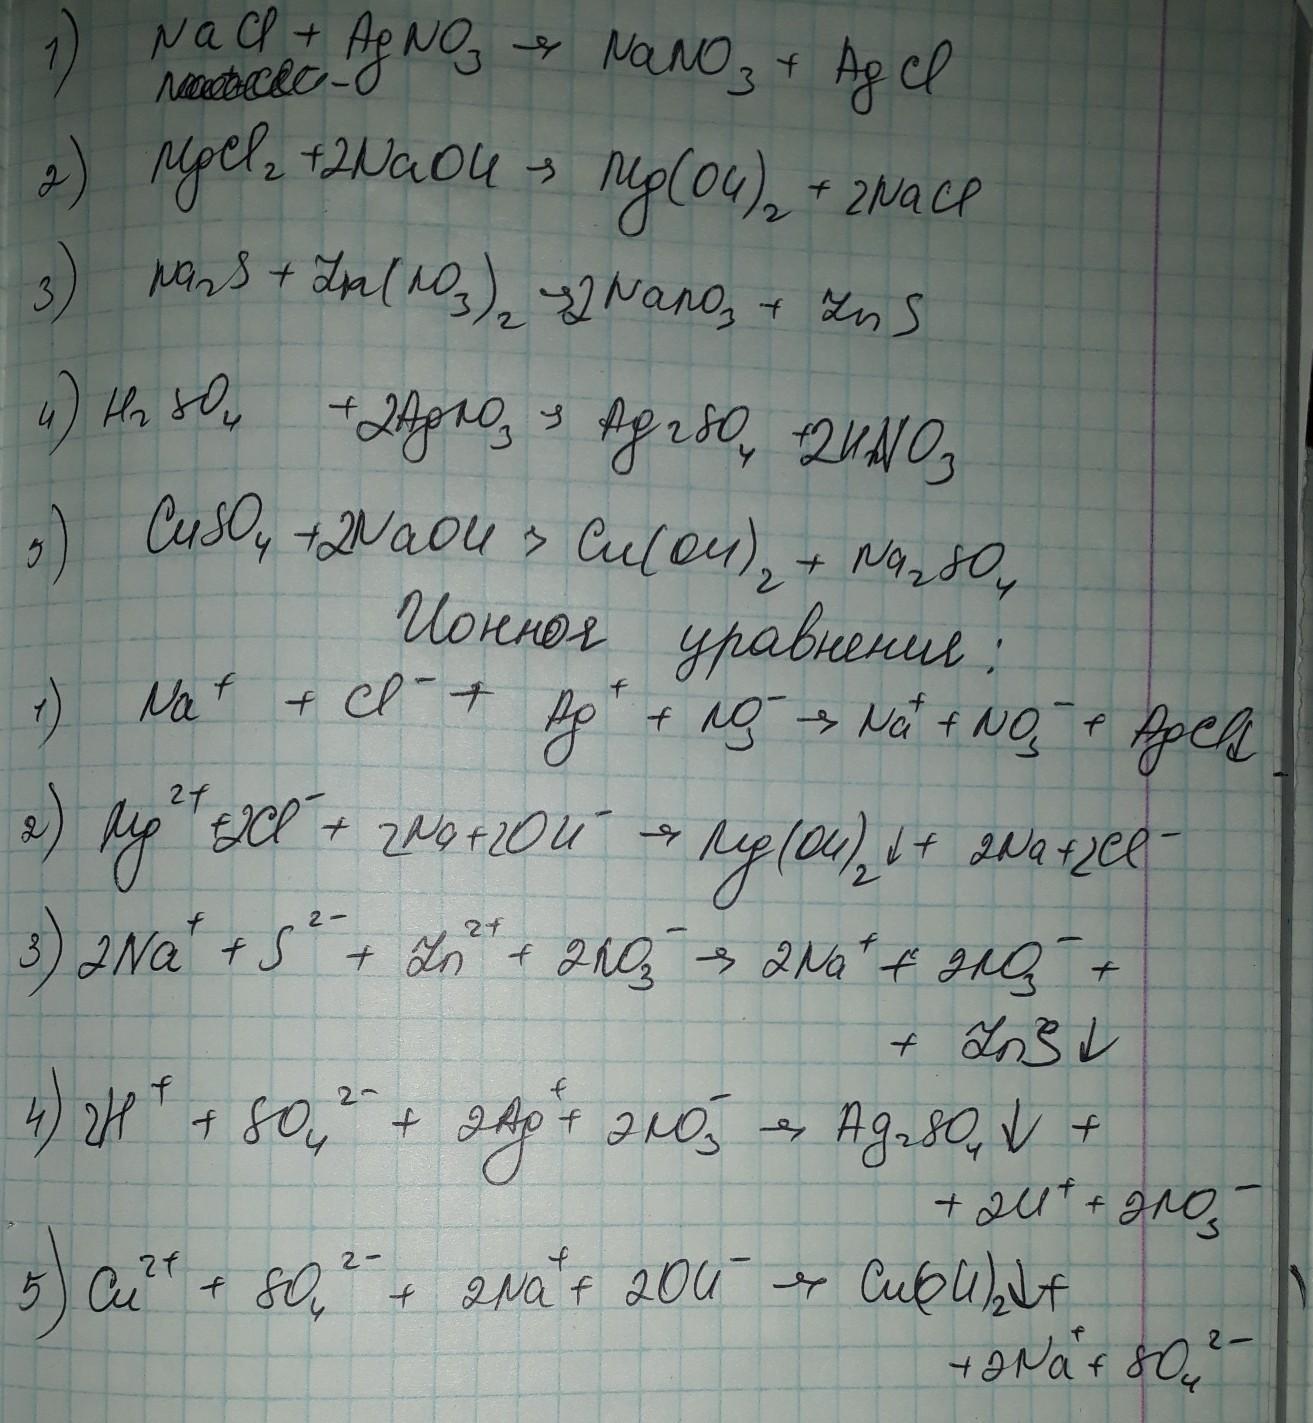 1) NaCl + AgNO₃ → NaNO₃ + AgCl
2) MgCl₂ + 2NaOH → Mg(OH)₂ + 2NaCl
3) Na₂S + Zn(NO₃)₂ → 2NaNO₃ + ZnS
4) H₂SO₄ + 2AgNO₃ → Ag₂SO₄ + 2HNO₃
5) CuSO₄ + 2NaOH → Cu(OH)₂ + Na₂SO₄
Ионноя уравнения:
1) Na⁺ + Cl⁻ + Ag⁺ + NO₃⁻ → Na⁺ + NO₃⁻ + AgCl↓
2) Mg²⁺ + 2Cl⁻ + 2Na + 2OH⁻ → Mg(OH)₂↓ + 2Na + 2Cl⁻
3) 2Na⁺ + S²⁻ + Zn²⁺ + 2NO₃⁻ → 2Na⁺ + 2NO₃⁻ +
+ ZnS↓
4) 2H⁺ + SO₄²⁻ + 2Ag⁺ + 2NO₃⁻ → Ag₂SO₄↓ +
+ 2H⁺ + 2NO₃⁻
5) Cu²⁺ + SO₄²⁻ + 2Na⁺ + 2OH⁻ → Cu(OH)₂↓ +
+ 2Na⁺ + SO₄²⁻